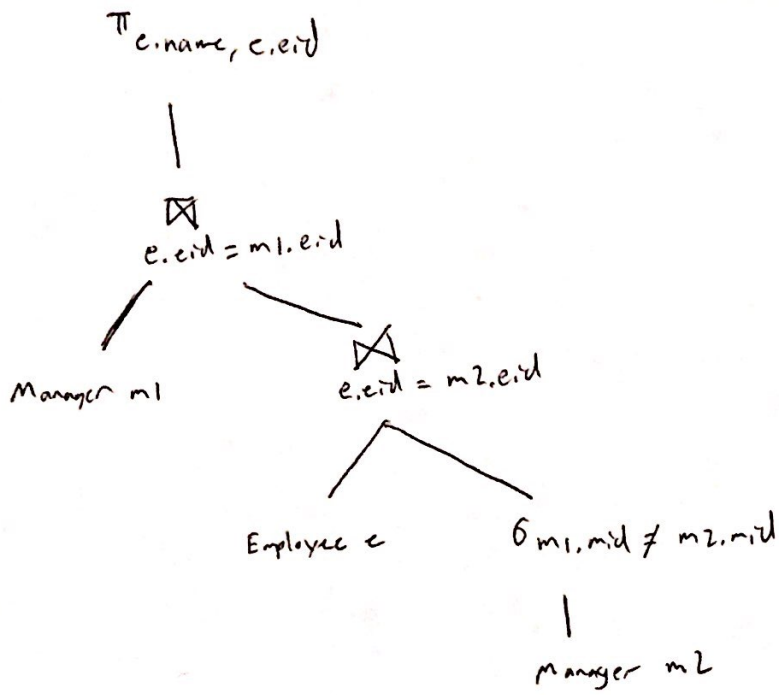 π e.name, e.eid
⋈
e.eid = m1.eid
Manager m1
⋈
e.eid = m2.eid
Employee e
σ m1.mid ≠ m2.mid
Manager m2